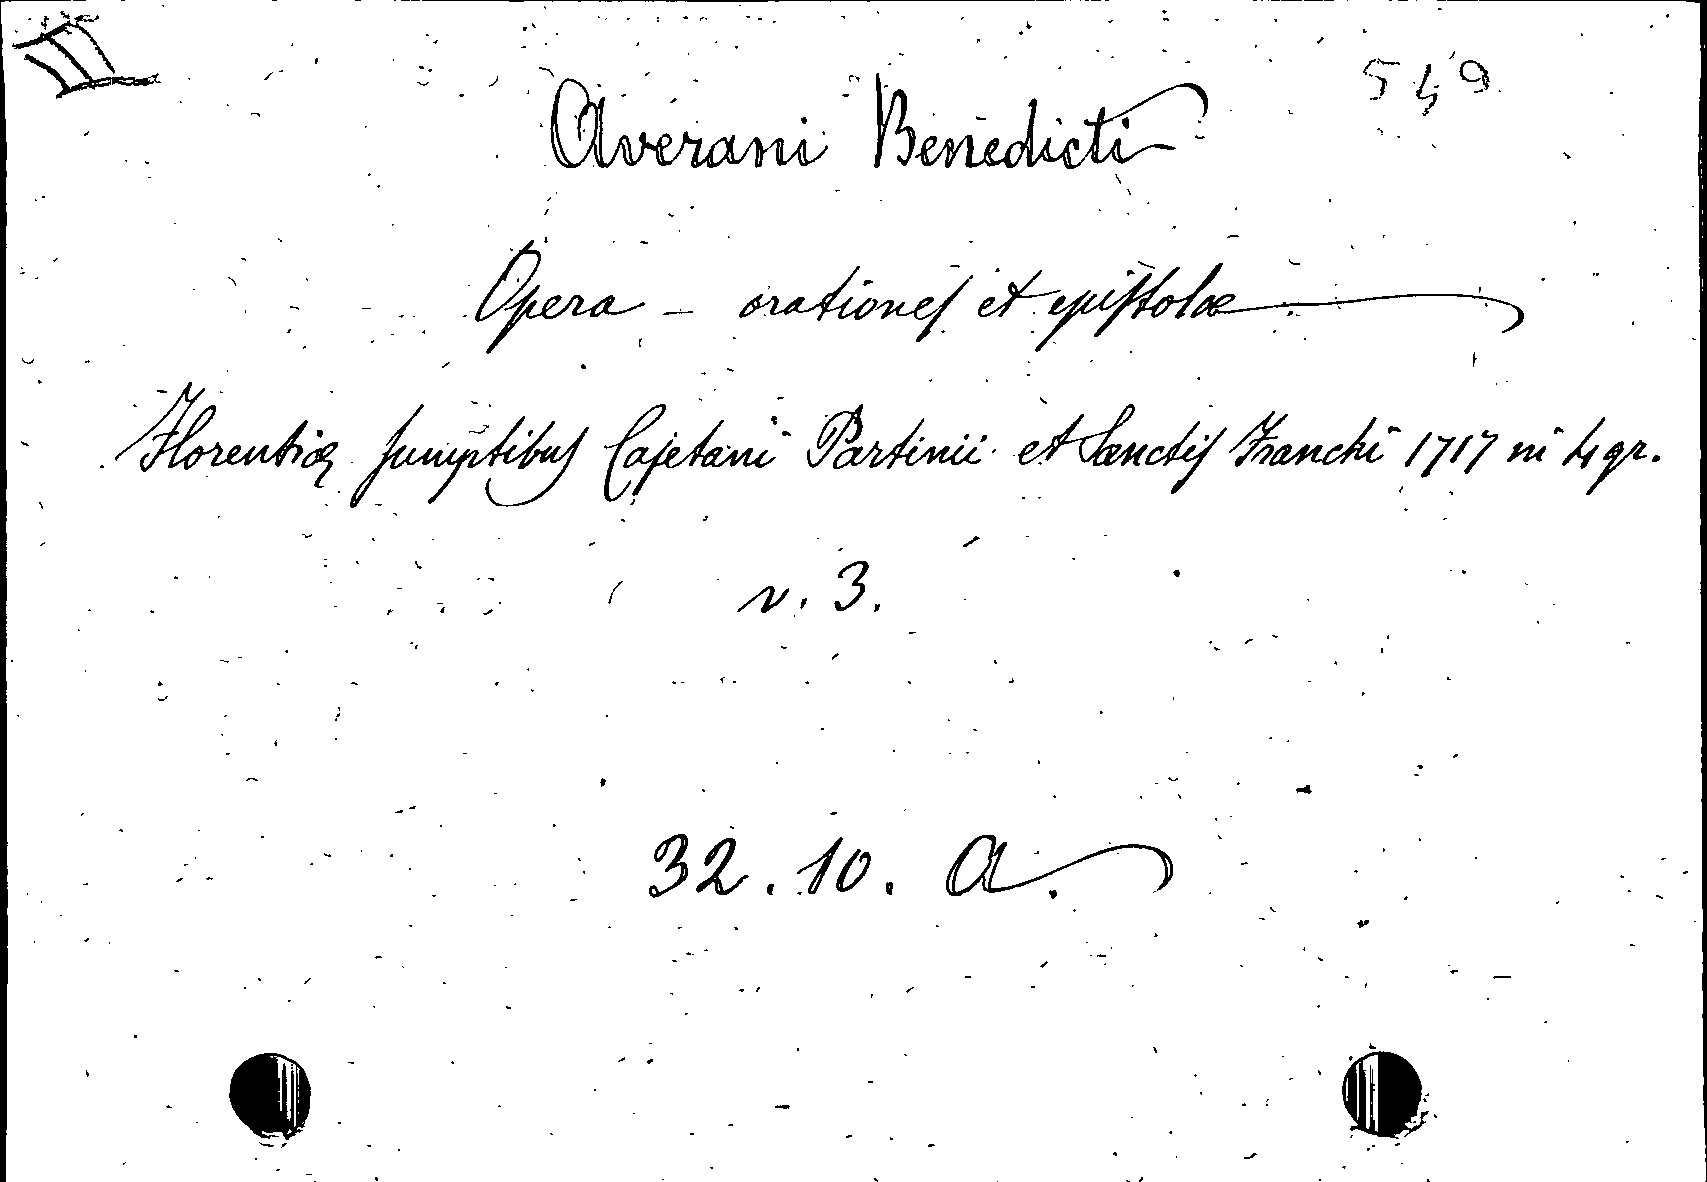 III
549
Averani Benedicti
Opera - orationes et epistolæ
Florentiæ sumptibus Cajetani Partinii et Sanctis Franchi 1717 in 4 gr.
v. 3.
32. 10. A.